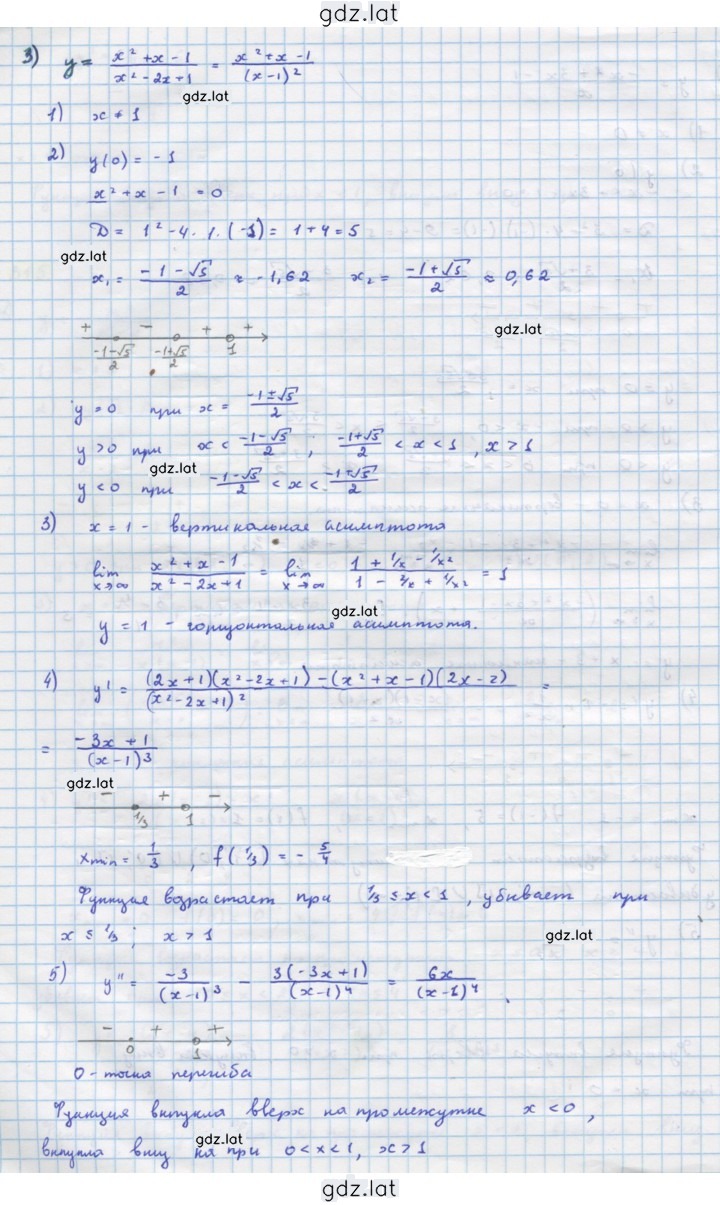 gdz.lat
3) y = (x² + x - 1)/(x² - 2x + 1) = (x² + x - 1)/(x - 1)²
gdz.lat
1) x ≠ 1
2) y(0) = -1
x² + x - 1 = 0
D = 1² - 4 · 1 · (-1) = 1 + 4 = 5
gdz.lat
x₁ = (-1 - √5)/2 ≈ -1,62 x₂ = (-1 + √5)/2 ≈ 0,62
+ - + +
gdz.lat
(-1-√5)/2 (-1+√5)/2 1
y = 0 при x = (-1 ± √5)/2
y > 0 при x < (-1-√5)/2 ; (-1+√5)/2 < x < 1 , x > 1
gdz.lat
y < 0 при (-1-√5)/2 < x < (-1+√5)/2
3) x = 1 - вертикальная асимптота
lim x→∞ (x² + x - 1)/(x² - 2x + 1) = lim x→∞ (1 + 1/x - 1/x²)/(1 - 2/x + 1/x²) = 1
gdz.lat
y = 1 - горизонтальная асимптота.
4) y' = ((2x+1)(x²-2x+1) - (x²+x-1)(2x-2))/(x²-2x+1)² =
= (-3x + 1)/(x-1)³
gdz.lat
- + -
1/3 1
xmin = 1/3 , f(1/3) = - 5/4
Функция возрастает при 1/3 ≤ x < 1 , убывает при
x ≤ 1/3 ; x > 1
gdz.lat
5) y'' = -3/(x-1)³ - 3(-3x+1)/(x-1)⁴ = 6x/(x-1)⁴
- + +
0 1
0 - точка перегиба
Функция выпукла вверх на промежутке x < 0 ,
gdz.lat
выпукла вниз на при 0 < x < 1, x > 1
gdz.lat